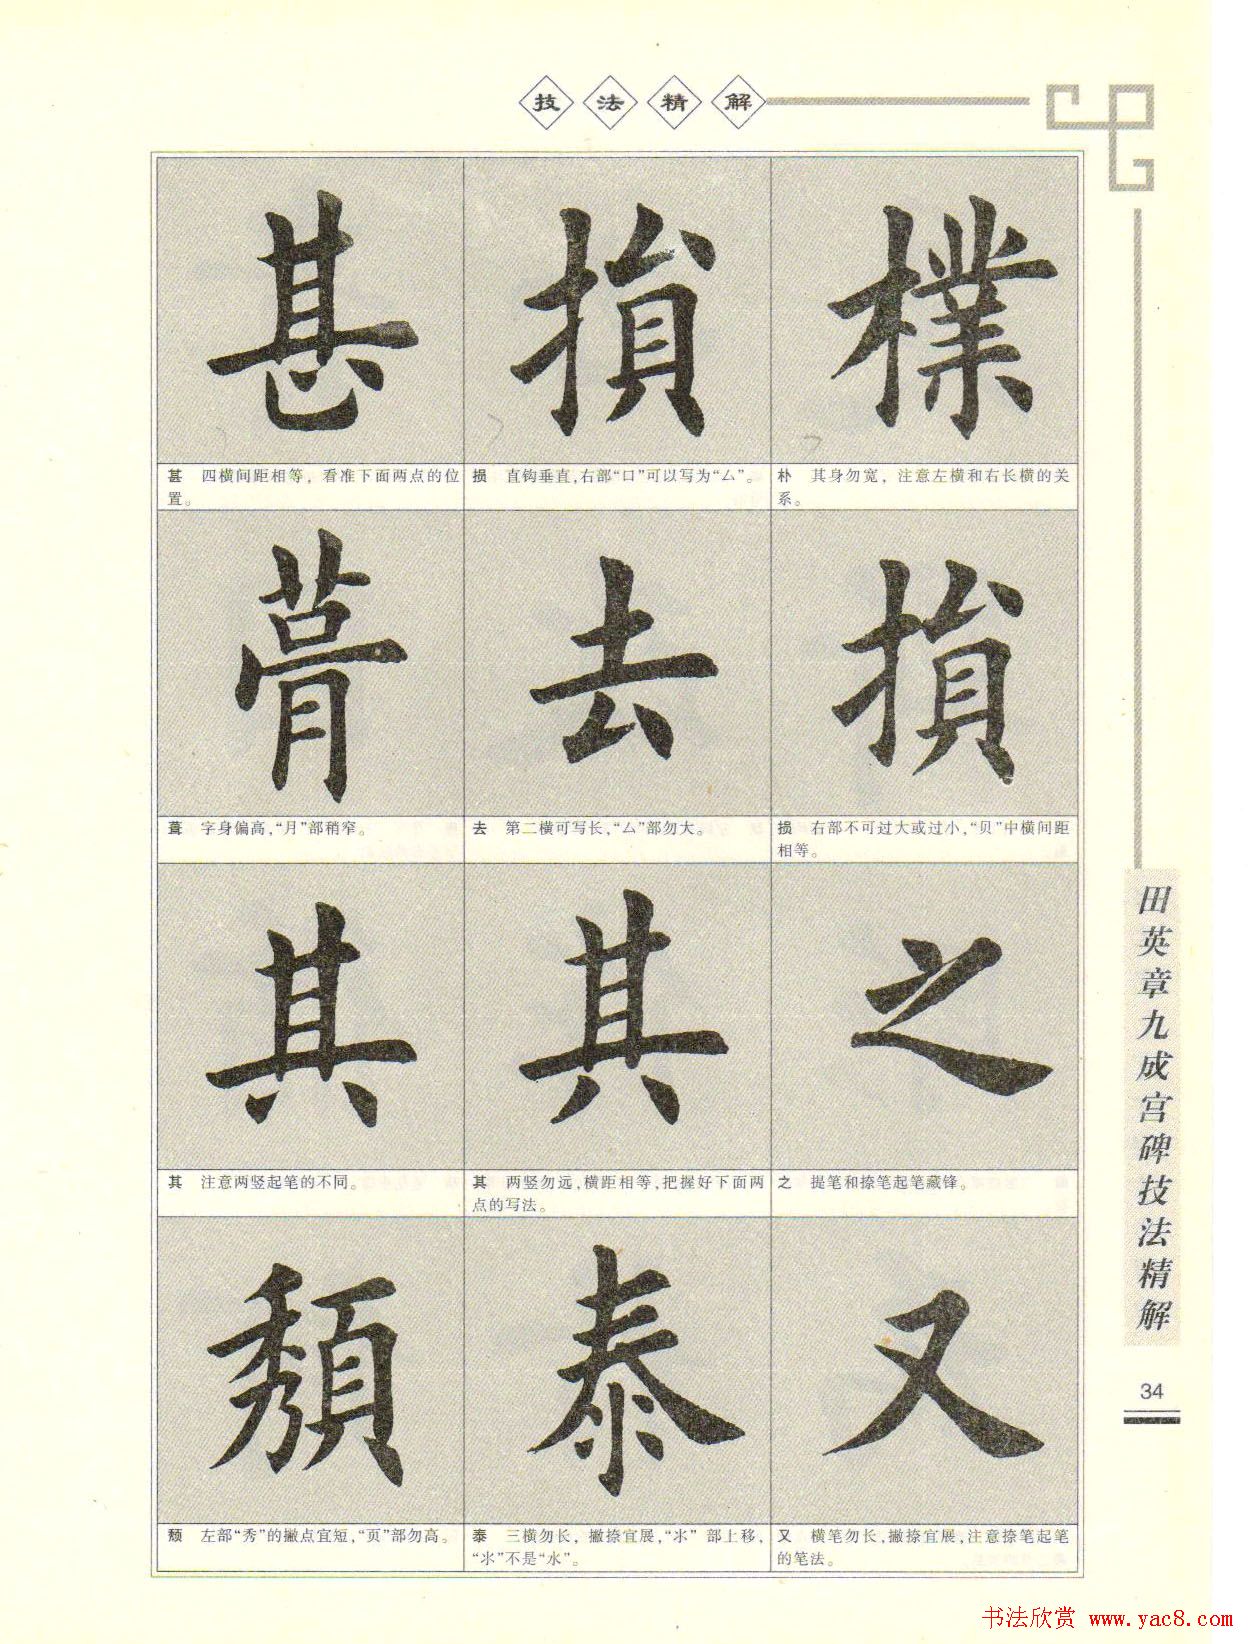 技法精解
甚 損 樸
甚 四横间距相等，看准下面两点的位
置。
损 直钩垂直,右部“口”可以写为“厶”。
朴 其身勿宽，注意左横和右长横的关
系。
去 損
葺 字身偏高,“月”部稍窄。
去 第二横可写长,“厶”部勿大。
损 右部不可过大或过小,“贝”中横间距
相等。
其 其 之
其 注意两竖起笔的不同。
其 两竖勿远,横距相等,把握好下面两
点的写法。
之 提笔和捺笔起笔藏锋。
頹 泰 又
颓 左部“秀”的撇点宜短,“页”部勿高。
泰 三横勿长，撇捺宜展,“氺”部上移,
“氺”不是“水”。
又 横笔勿长,撇捺宜展,注意捺笔起笔
的笔法。
田英章九成宫碑技法精解
34
书法欣赏 www.yac8.com